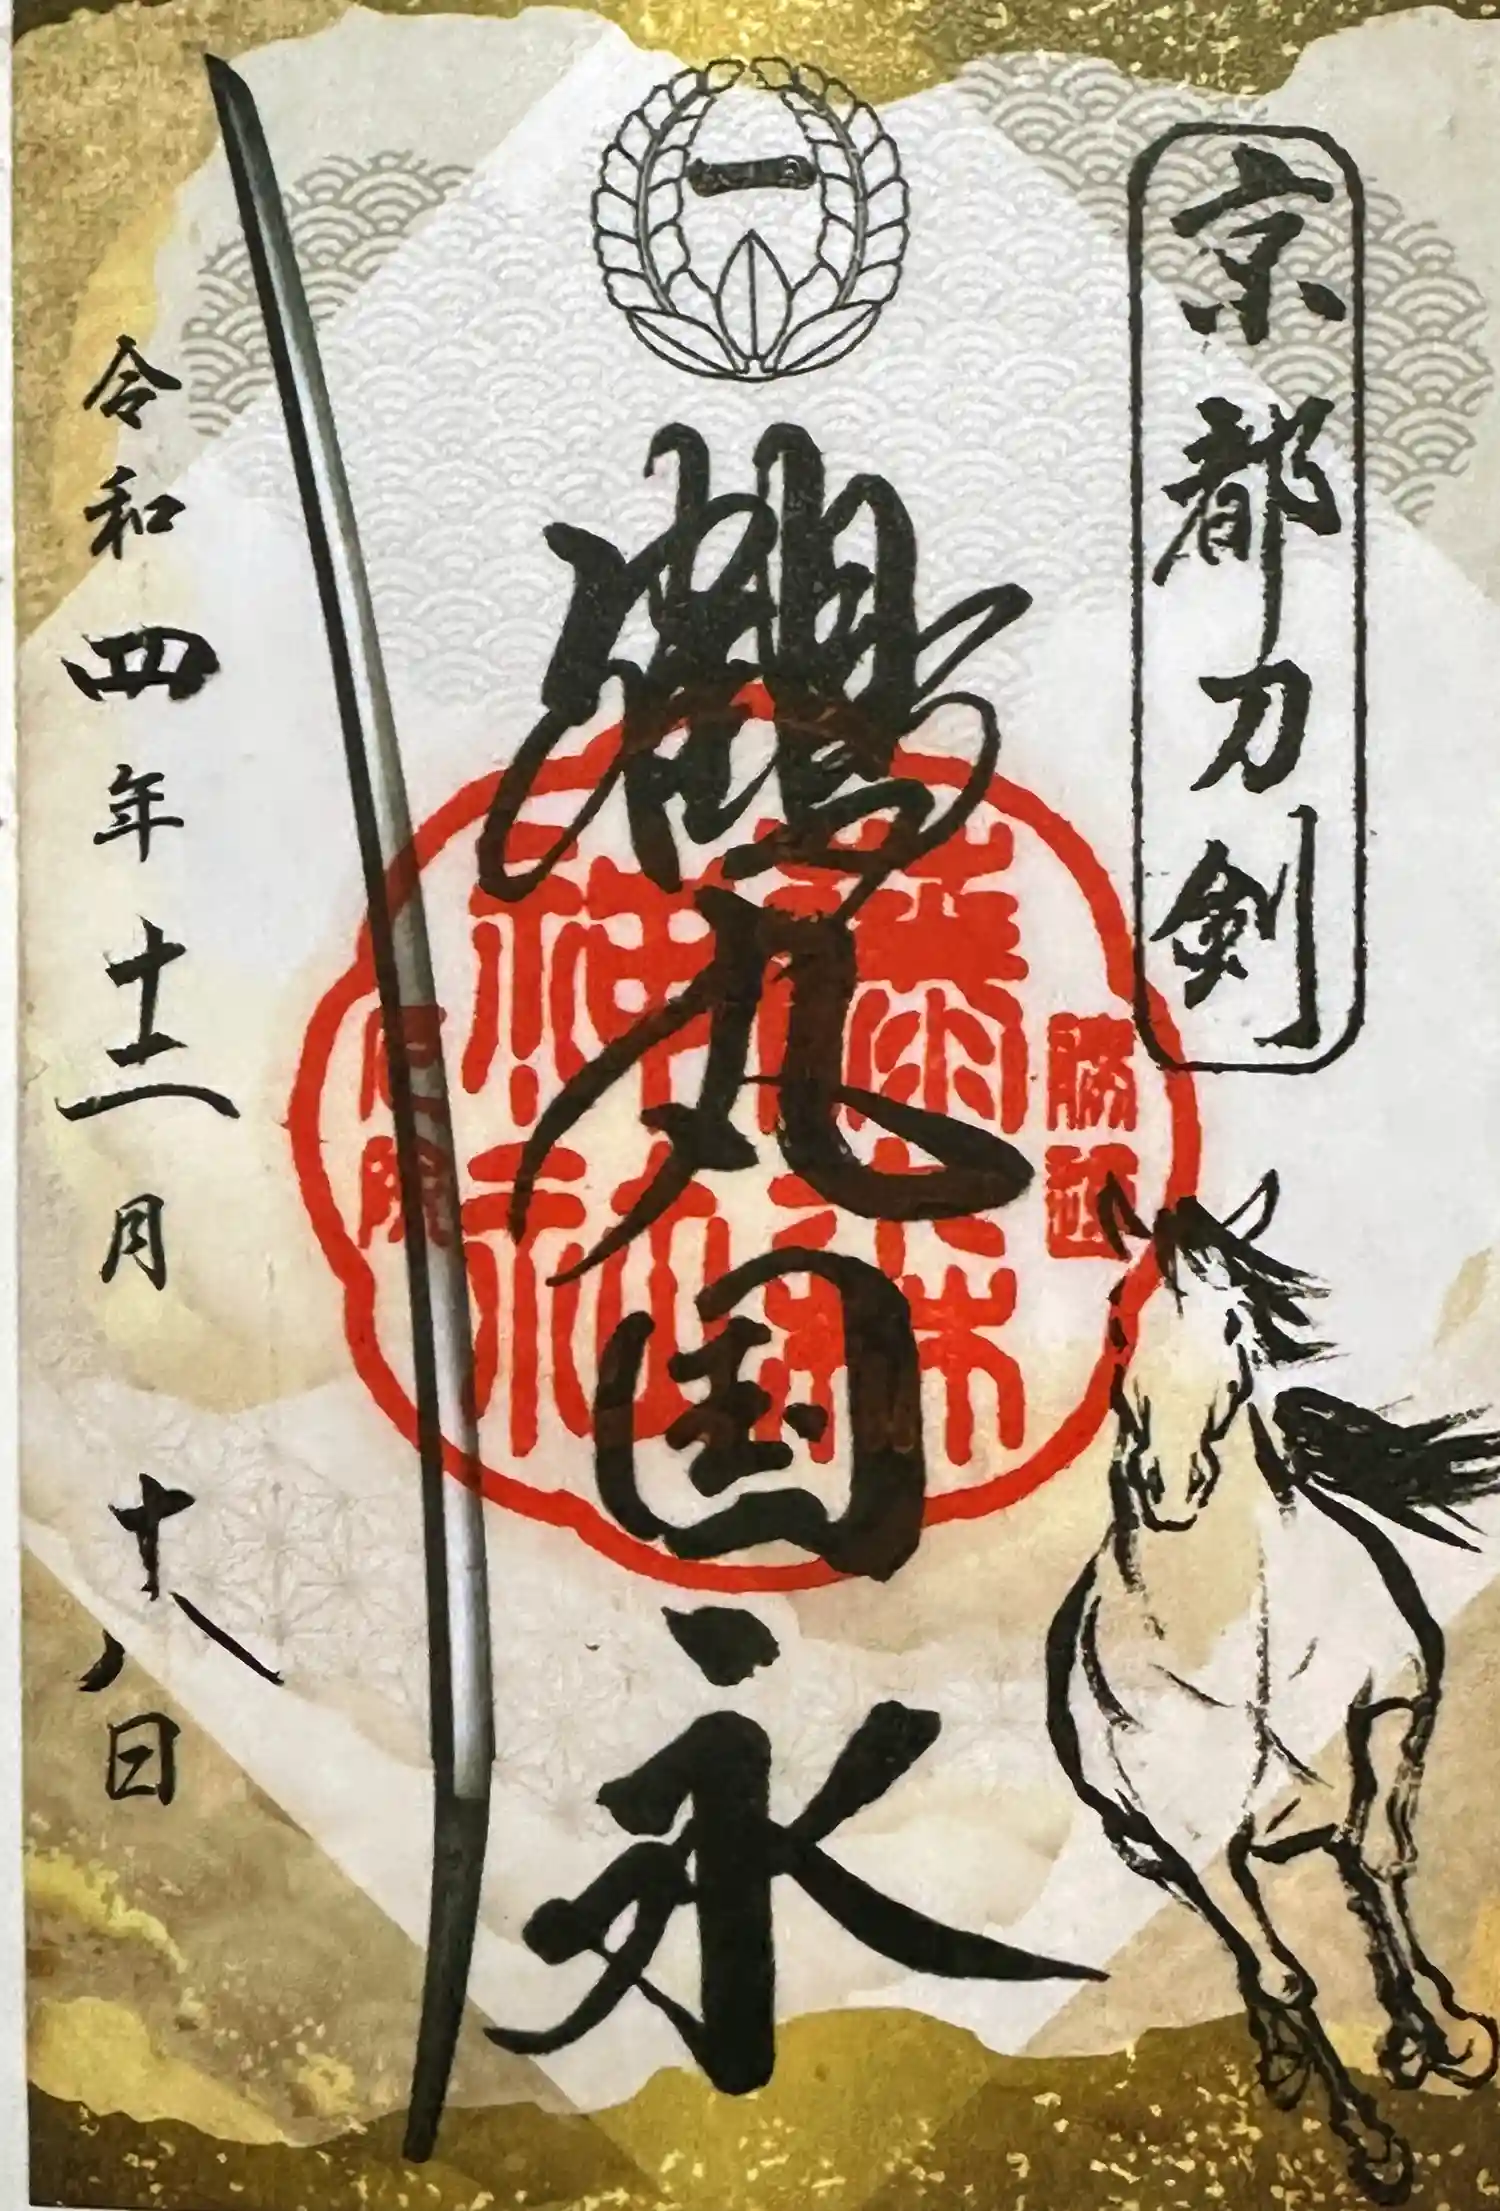 京都刀剣
一
鶴丸国永
勝運
藤森
神社
令和四年十二月十八日